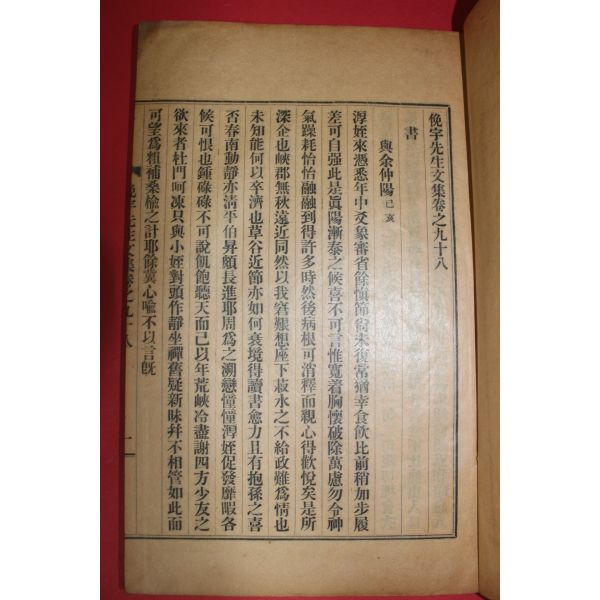 俛宇先生文集卷之九十八
書
與余仲陽 己亥
淳姪來憑悉年中受象審省餘愼節尙未復常猶幸食飮比前稍加步履
差可自强此是眞陽漸泰之候喜不可言惟寬着胸懷破除萬慮勿令神
氣躁耗怡怡融融到得許多時然後病根可消釋而親心得歡悅矣是所
深企也峽郡無秋遠近同然以我窘艱想座下菽水之不給政難爲情也
未知能何以卒濟也草谷近節亦如何衰境得讀書愈力且有抱孫之喜
否春南動靜亦淸平伯昇頗長進耶周爲之溯戀憧憧淳姪促發靡暇各
候可恨也鍾碌碌不可說飢飽聽天而已以年荒峽冷盡謝四方少友之
欲來者杜門呵凍只與小姪對頭作靜坐禪舊疑新昧幷不相管如此而
可望爲粗補桑楡之計耶餘冀心喩不以言旣
俛宇先生文集卷之九十八
一